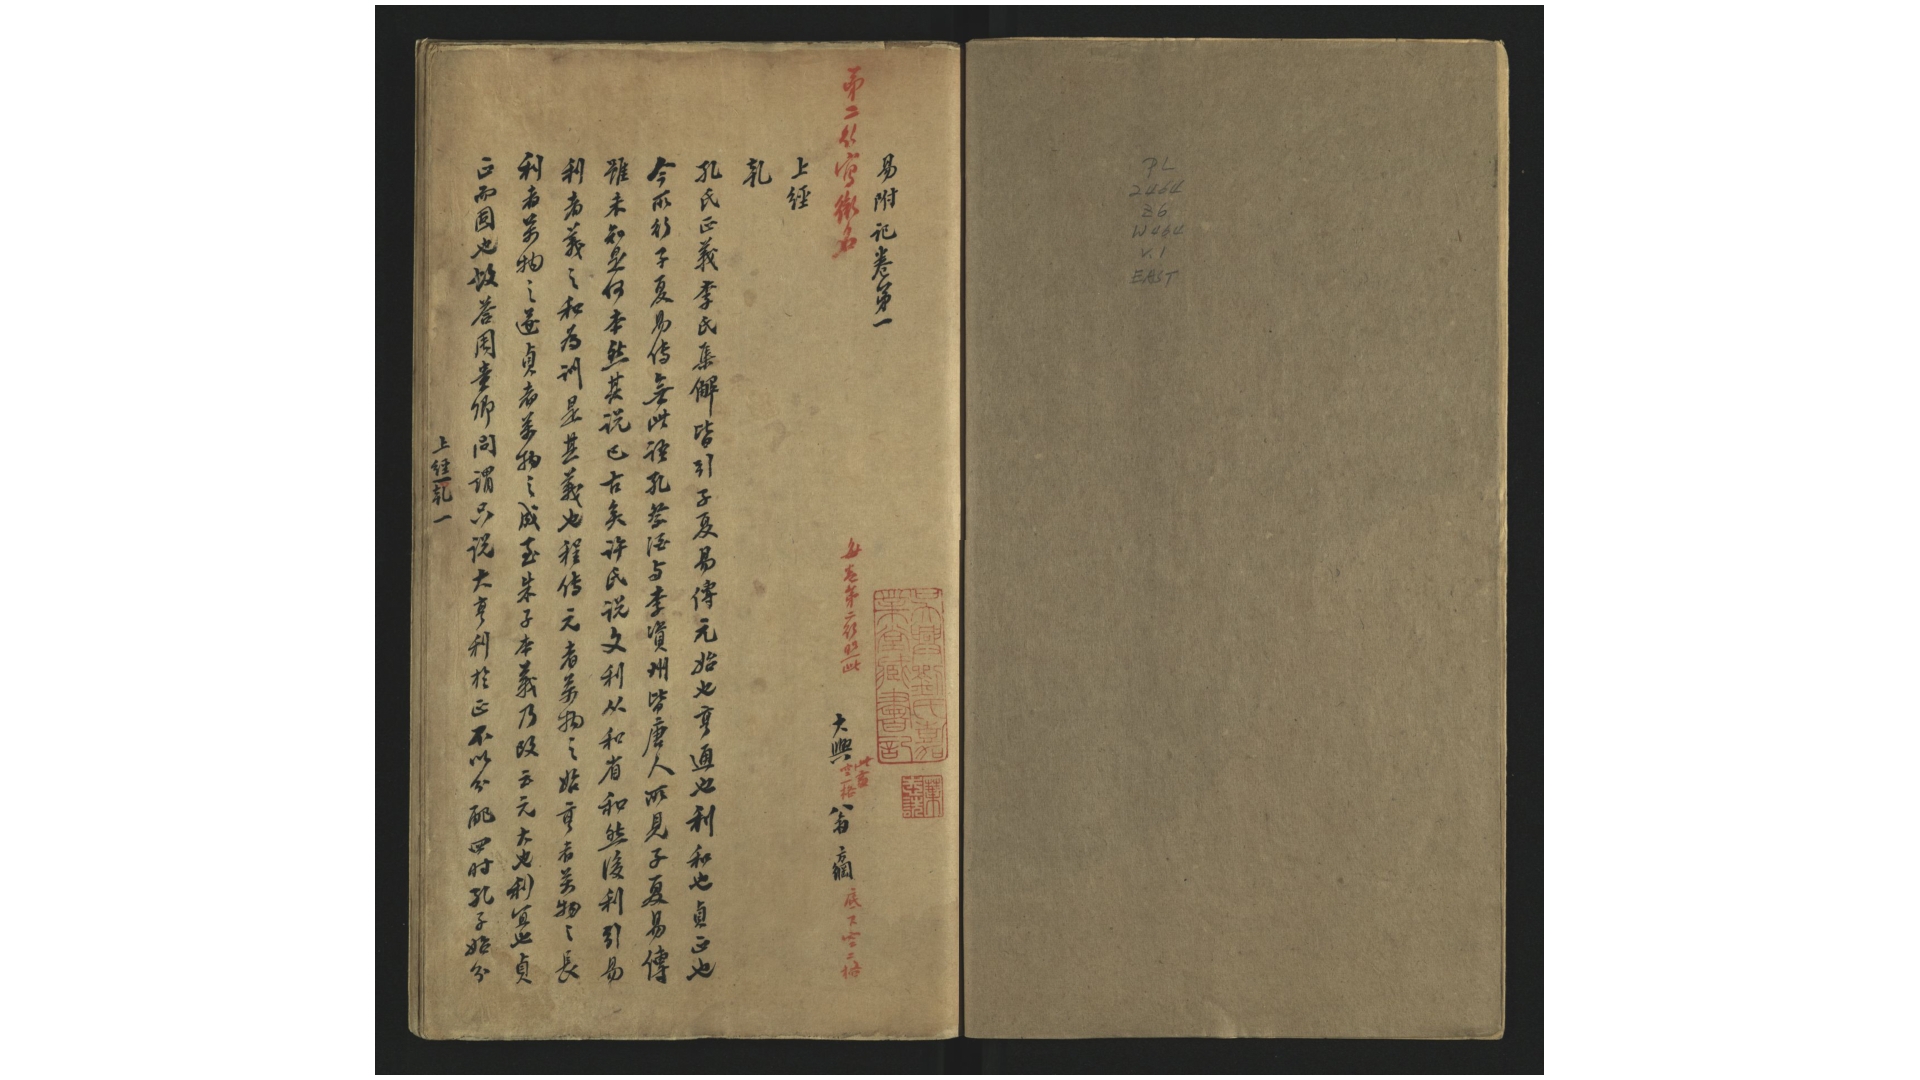 PL
2464
Z6
W464
V.1
EAST
易附記卷第一
第二行寫銜名
每卷第二行照此
大興
此處
空一格
翁方綱
底下空二格
吳興劉氏嘉
業堂藏書記
上經
乾
孔氏正義李氏集解皆引子夏易傳元始也亨通也利和也貞正也
今所行子夏易傳無此語孔祭酒與李資州皆唐人所見子夏易傳
雖未知是何本然其說已古矣許氏說文利从和省和然後利引易
利者義之和為訓是其義也程傳元者萬物之始亨者萬物之長
利者萬物之遂貞者萬物之成至朱子本義乃改云元大也利宜也貞
正而固也故答周童卿問謂只說大亨利於正不以分配四時孔子始分
上經乾一